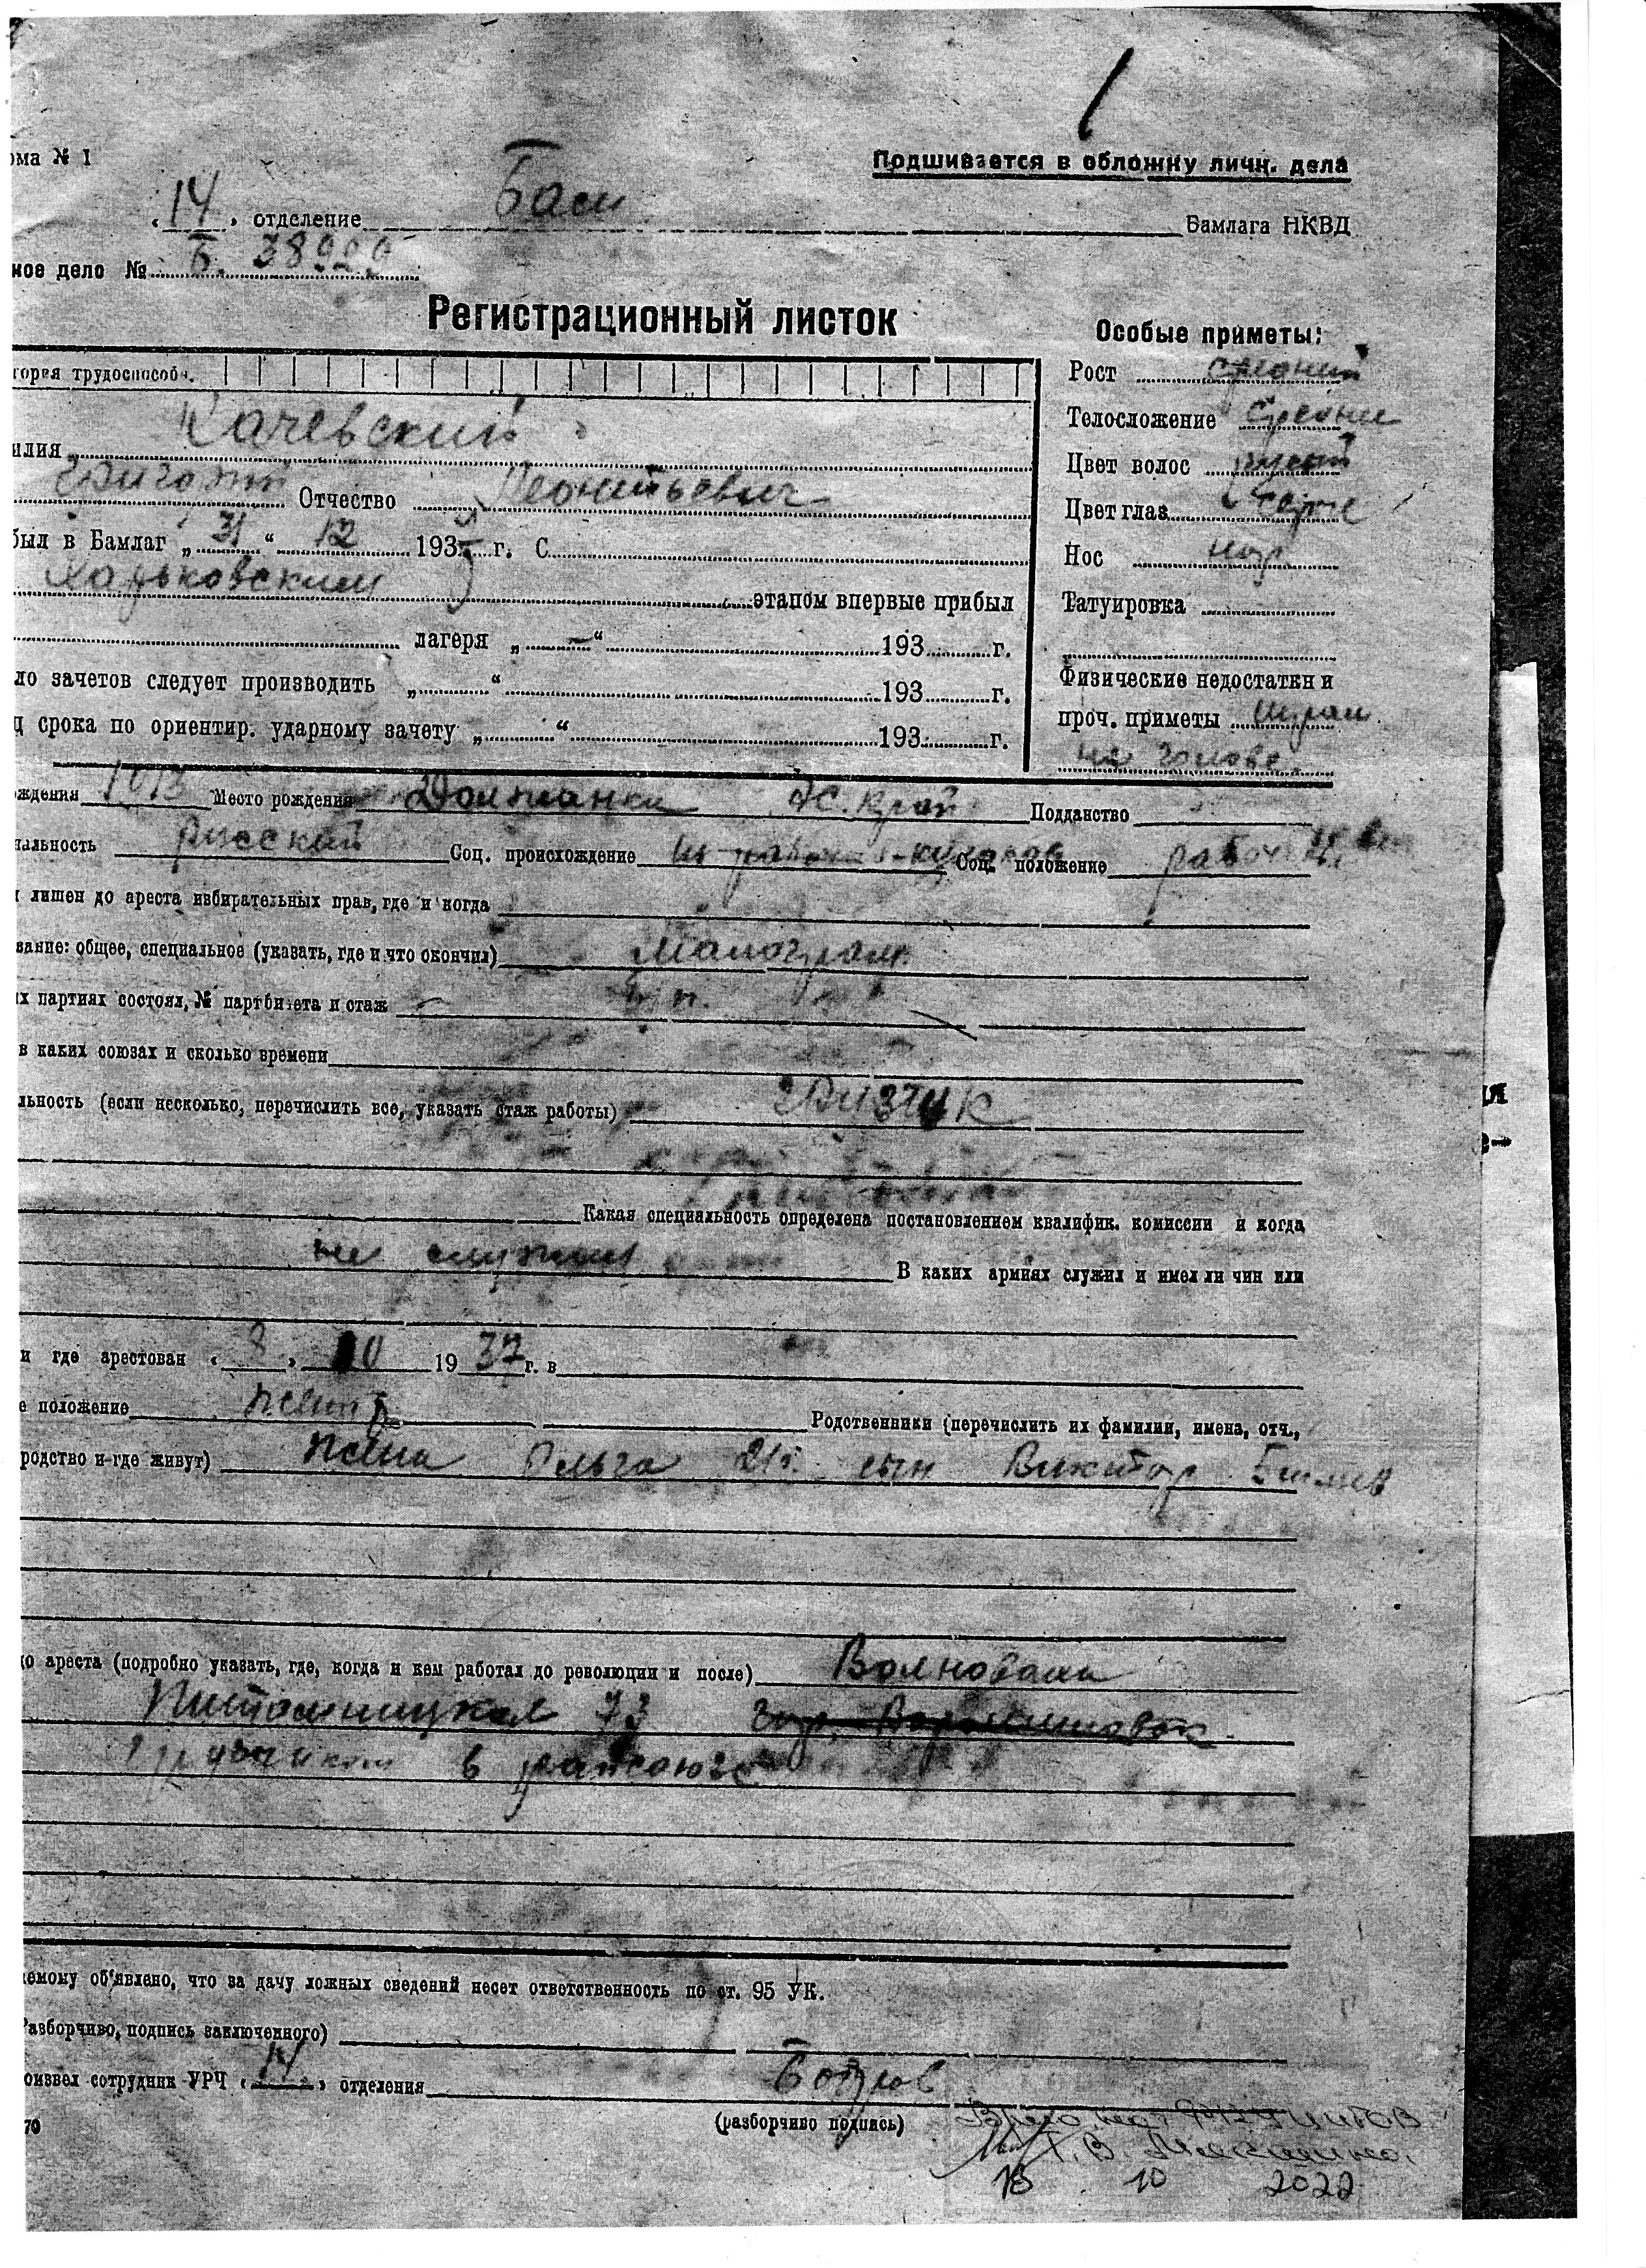 ома № 1
Подшивается в обложку личн. дела
„14" отделение Бам Бамлага НКВД
ное дело № Б. 38929
Регистрационный листок
Особые приметы:
гория трудоспособн.
Рост средний
илия Качевский
Телосложение средние
Цвет волос русый
Отчество Леонтьевич
Цвет глаз серые
был в Бамлаг „31" 12 193 г. С
Нос нор
Харьковским этапом впервые прибыл
Татуировка
лагеря „ — " 193 г.
ло зачетов следует производить „ " 193 г.
Физические недостатки и
ц срока по ориентир. ударному зачету „ " 193 г.
проч. приметы шрам
на голове
ждения 1913 Место рождения АС. край Подданство
нальность русский Соц. происхождение из кулаков Соц. положение рабоч
лишен до ареста избирательных прав, где и когда
вание: общее, специальное (указать, где и что окончил) малограм.
их партиях состоял, № партбилета и стаж — б.п.
в каких союзах и сколько времени
льность (если несколько, перечислить все, указать стаж работы)
Какая специальность определена постановлением квалифик. комиссии и когда
не служил В каких армиях служил и имел ли чин или
и где арестован „8" 10 1937 г. в
е положение женат Родственники (перечислить их фамилии, имена, отч.,
родство и где живут) жена Ольга 21 г. сын Виктор 5 мес
до ареста (подробно указать, где, когда и кем работал до революции и после) Волноваха
73
грузчиком в
емому об'явлено, что за дачу ложных сведений несет ответственность по ст. 95 УК.
Разборчиво, подпись заключенного)
оизвел сотрудник УРЧ „14" отделения
(разборчиво подпись)
70
18 10 2022